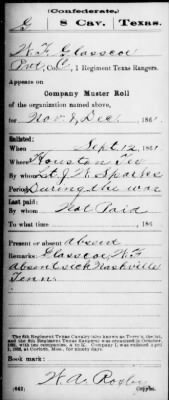 (Confederate.)
G 8 Cav. Texas.
W. F. Glasscoe
Pvt, Co. C, 1 Regiment Texas Rangers.
Appears on
Company Muster Roll
of the organization named above,
for Nov & Dec, 1861
Enlisted:
When Sept 12, 1861
Where Houston Tex
By whom Lt. J. W. Sparks
Period During the war
Last paid:
By whom Not Paid
To what time , 186
Present or absent absent
Remarks: Glasscoe, W. F.
absent sick Nashville
Tenn.
The 8th Regiment Texas Cavalry (also known as Terry's, the 1st,
and the 8th Regiment Texas Rangers) was organized in October,
1861, with ten companies, A to K. Company L was enlisted April
1, 1862, at Corinth, Miss., for ninety days.
Book mark:
(642) Copyist.